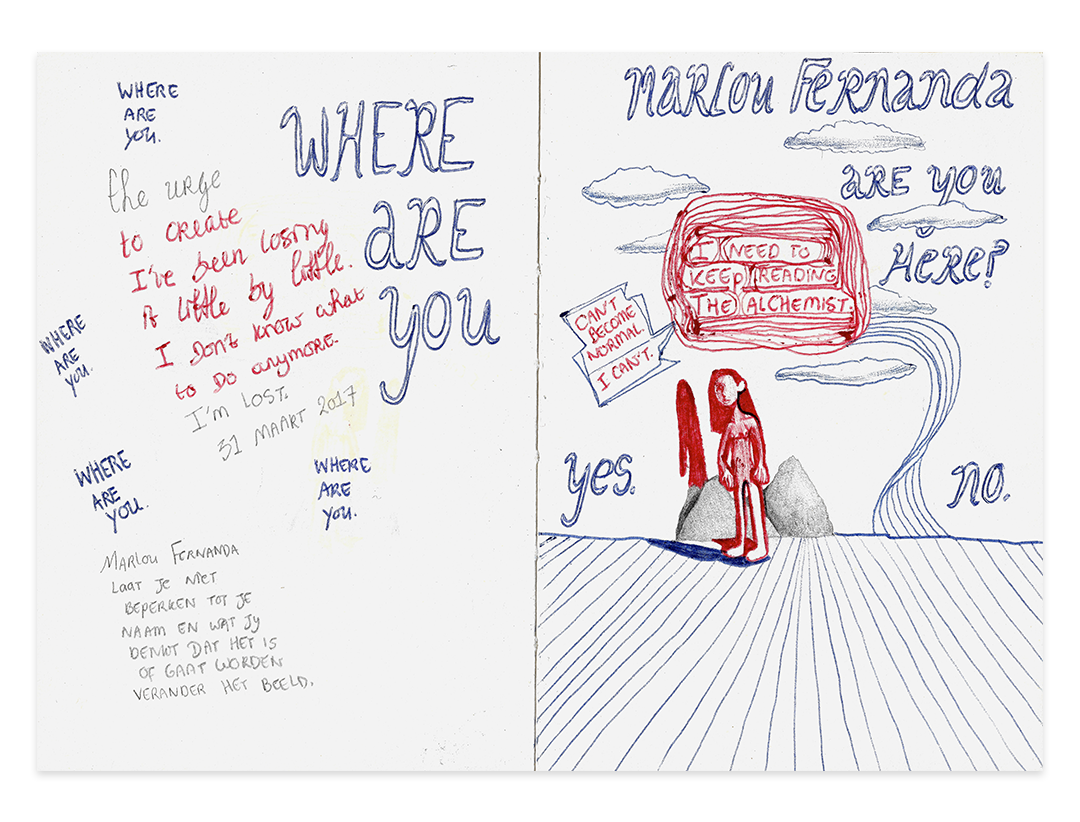 WHERE
ARE
YOU.
the urge
to create
I've been losing
A little by little.
I Don't know what
to Do anymore.
I'm LOST.
31 MAART 2017
WHERE
ARE
YOU
WHERE
ARE
YOU.
WHERE
ARE
YOU.
WHERE
ARE
YOU.
MARLOU FERNANDA
LAAT JE NIET
BEPERKEN TOT JE
NAAM EN WAT JY
DENKT DAT HET IS
OF GAAT WORDEN
VERANDER HET BEELD.
MARLOU FERNANDA
ARE YOU
HERE?
I NEED TO
KEEP READING
THE ALCHEMIST.
CAN'T
BECOME
NORMAL.
I CAN'T.
yes.
no.